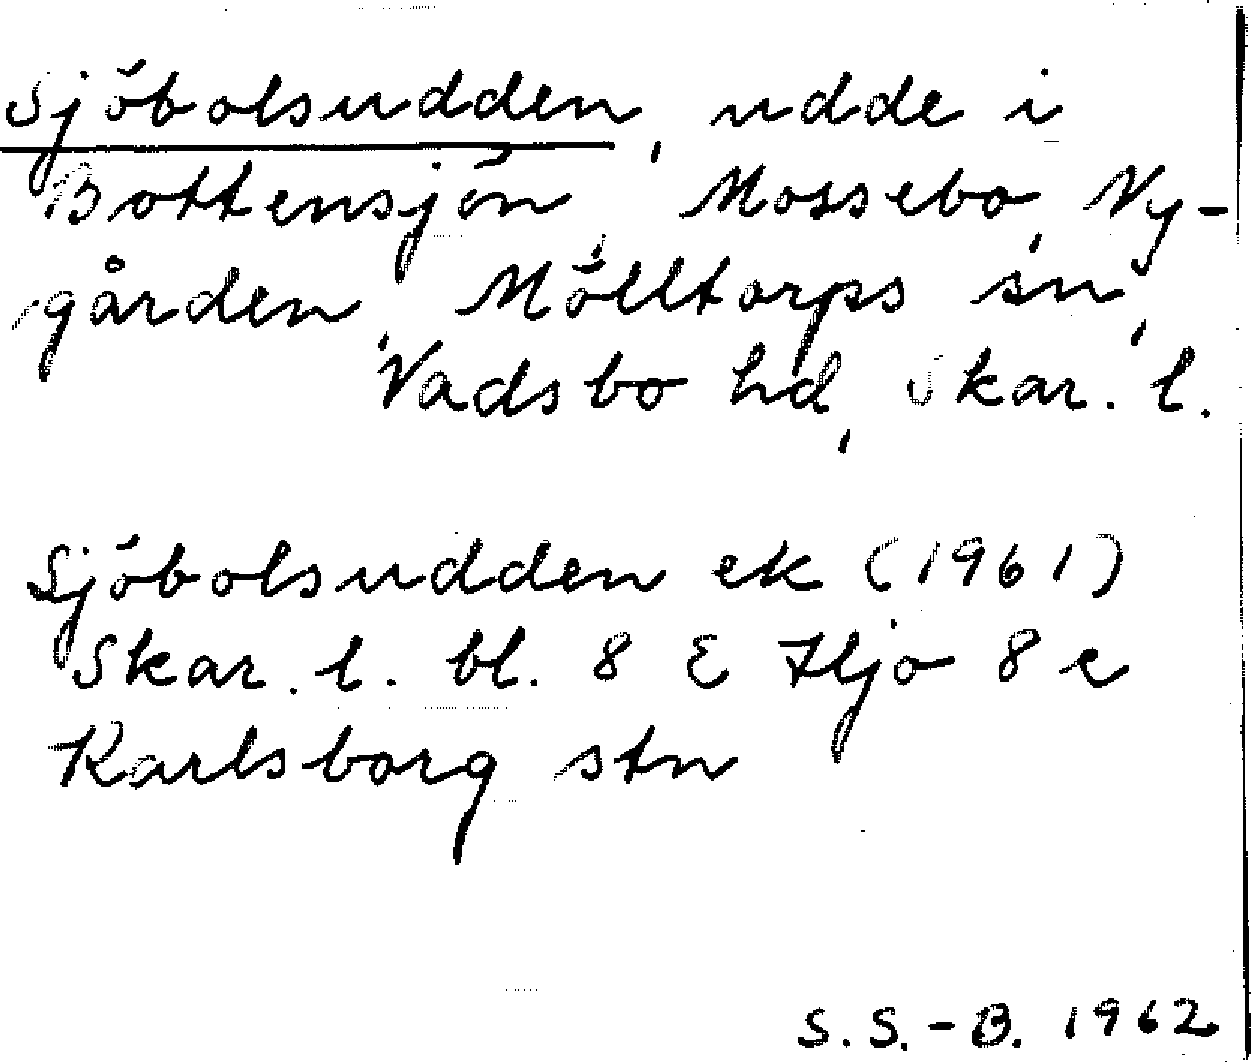 Sjöbolsudden, udde i
Bottensjön, Mossebo, Ny-
gården, Mölltorps sn,
Vadsbo hd, Skar. l.
Sjöbolsudden ek (1961)
Skar. l. bl. 8 E Hjo 8 e
Karlsborg stn
S. S.-B. 1962